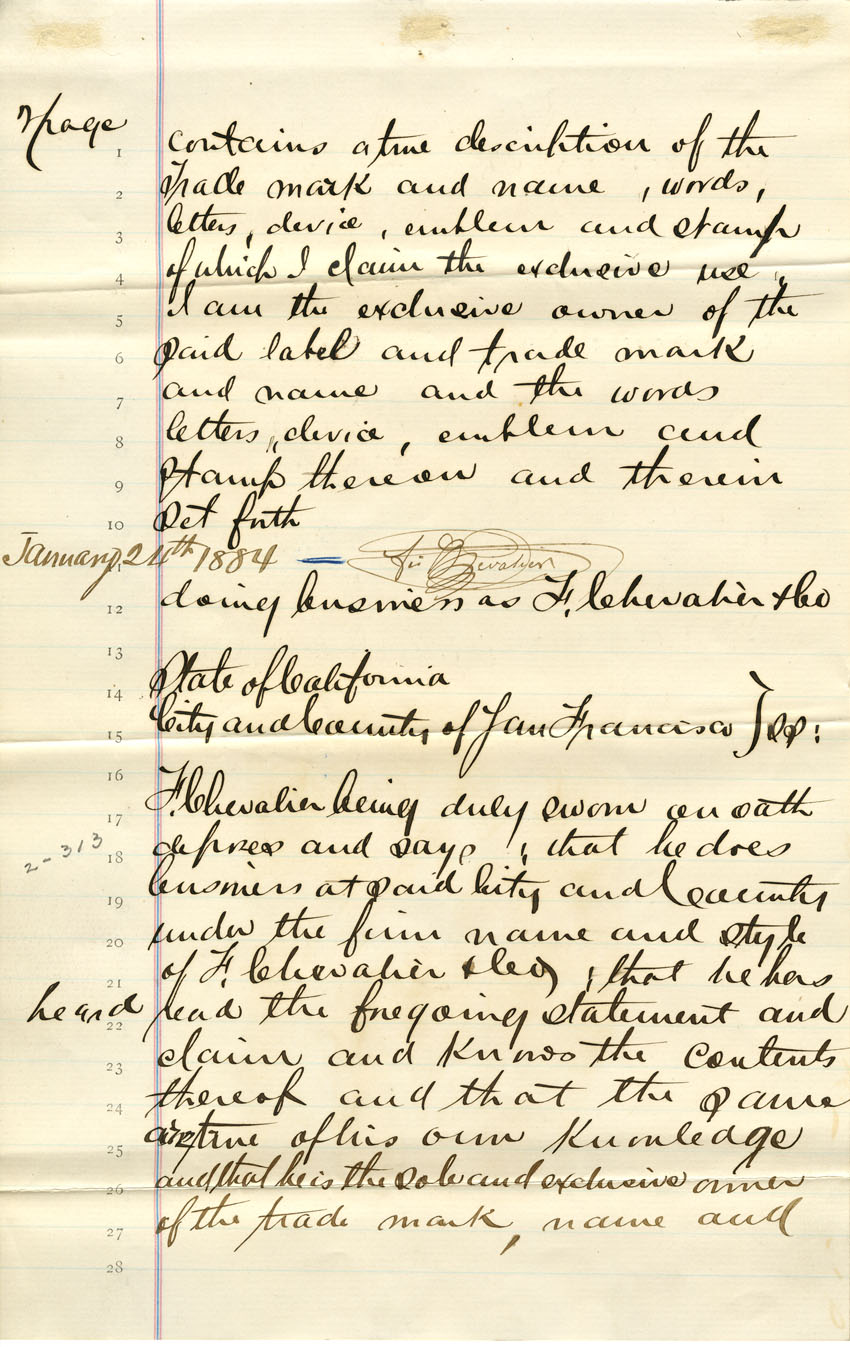 page
1 contains a true description of the
2 Trade mark and name, words,
3 letters, device, emblem and stamp
4 of which I claim the exclusive use.
5 I am the exclusive owner of the
6 said label and trade mark
7 and name and the words
8 letters, device, emblem and
9 stamp thereon and therein
10 set forth
January 24th 1884 — Chevalier
12 doing business as F. Chevalier & Co
13
14 State of California
15 City and County of San Francisco } ss:
16
17 F. Chevalier being duly sworn on oath
2-313
18 deposes and says; that he does
19 business at said City and County
20 under the firm name and style
21 of F. Chevalier & Co; that he has
heard
22 read the foregoing statement and
23 claim and knows the contents
24 thereof and that the same
25 true of his own knowledge
26 and that he is the sole and exclusive owner
27 of the trade mark, name and
28